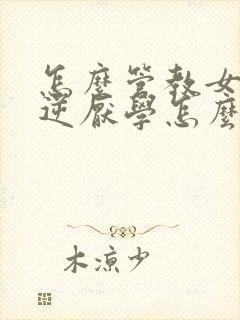 怎麼管教女
逆厭學怎麼
木涼少